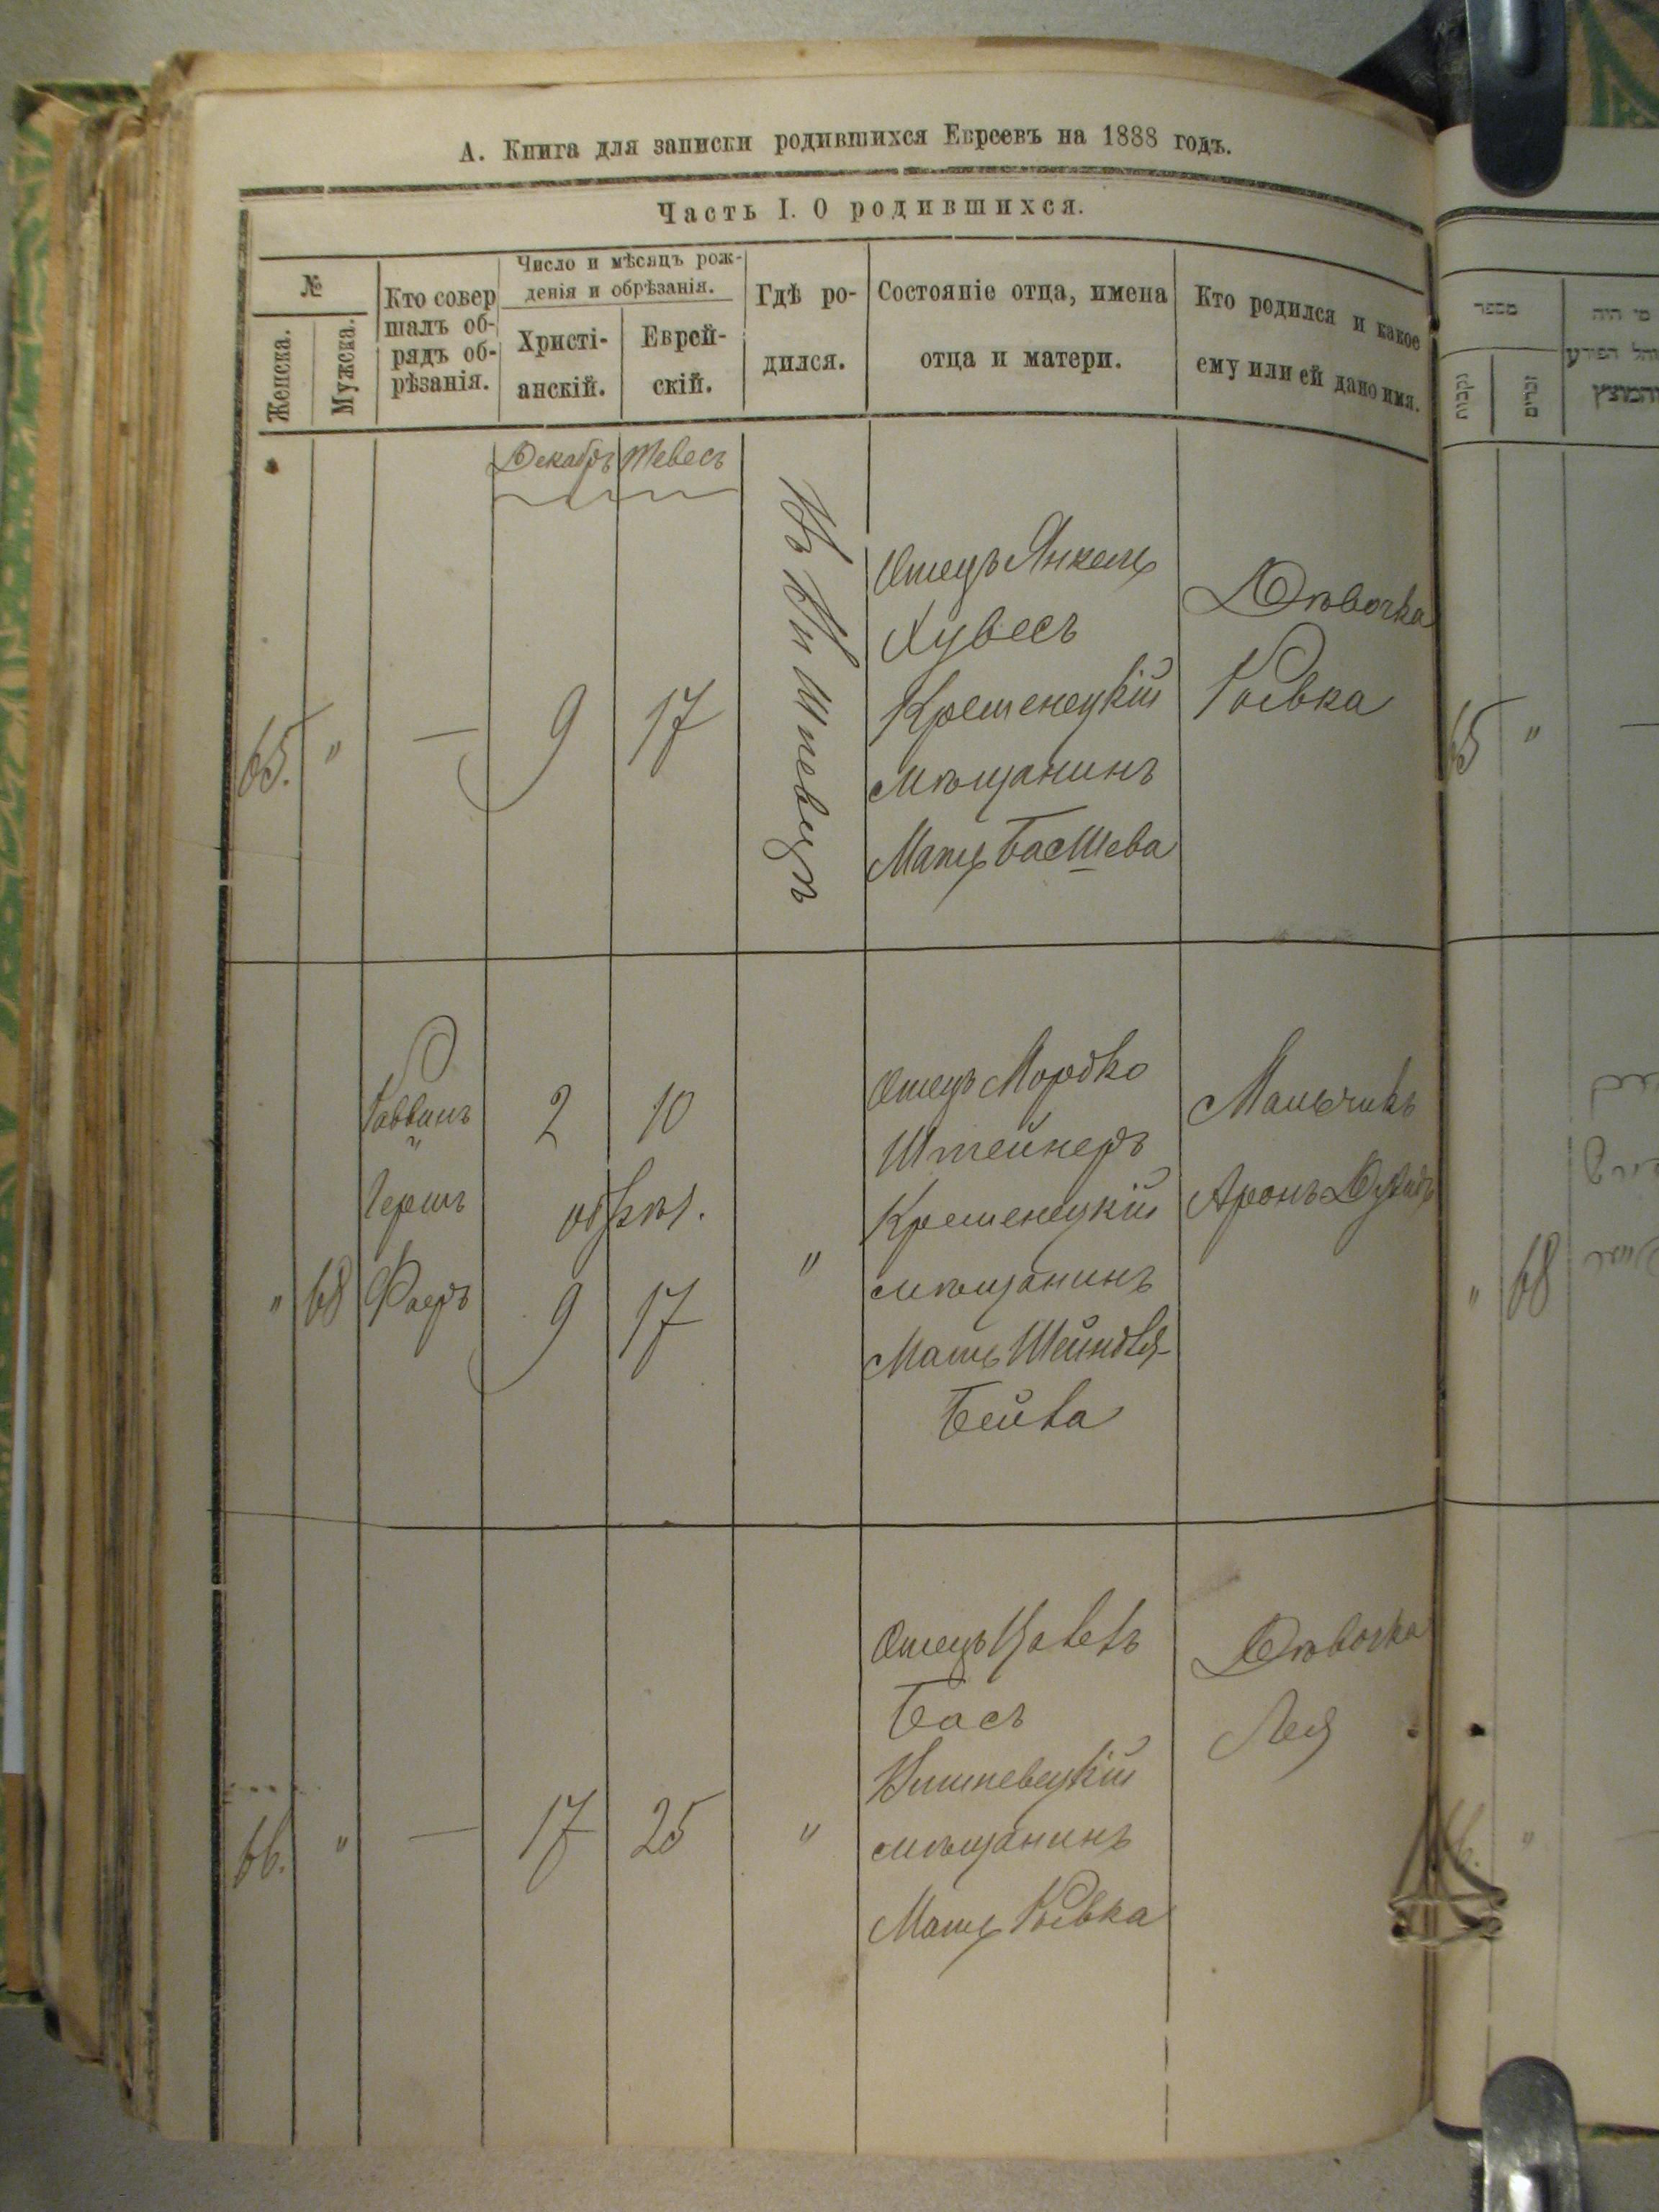 А. Книга для записки родившихся Евреевъ на 1888 годъ.
Часть I. О родившихся.
№
Женска.
Мужска.
Кто совер
шалъ об-
рядъ об-
рѣзанія.
Число и мѣсяцъ рож-
денія и обрѣзанія.
Христі-
анскій.
Еврей-
скій.
Гдѣ ро-
дился.
Состояніе отца, имена
отца и матери.
Кто родился и какое
ему или ей дано имя.
Декабрь Тевесъ
65. " — 9 17
Въ Вишневцѣ
Отецъ Янкель
Хувесъ
Кременецкій
мѣщанинъ
Мать БасШева
Дѣвочка
Ривка
" 68
Раввинъ
Герш
Фаеръ
2 10
обрѣз.
9 17
"
Отецъ Мордко
Штейнеръ
Кременецкій
мѣщанинъ
Мать Шейндля
Бейла
Мальчикъ
Аронъ Дувидъ
66. " — 17 25 "
Отецъ
Басъ
Вишневецкій
мѣщанинъ
Мать Ривка
Дѣвочка
Лея
מספר
נקבות
זכרים
מי היה
והמוצץ
65 "
" 68